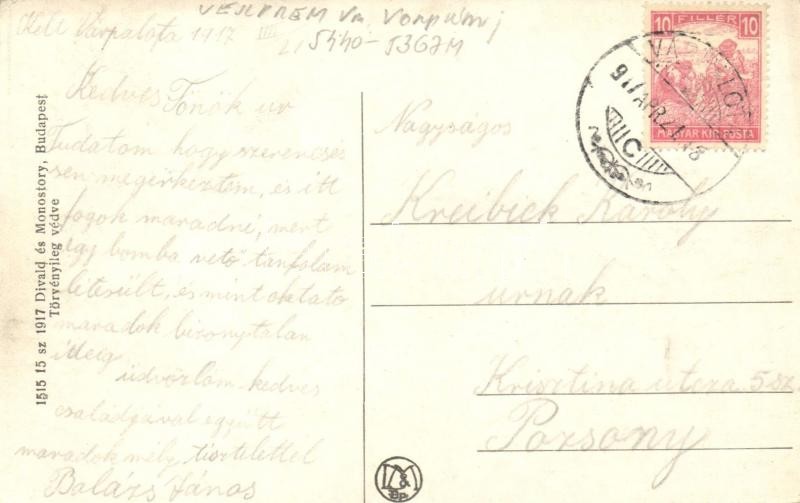 VESZPRÉM Vm.
5440-
Kelt Várpalota 1917
Kedves Főnök ur
Tudatom hogy szerencsé
sen megérkeztem, és itt
fogok maradni, mert
egy bomba vető tanfolyam
létesült, és mint oktató
maradok bizonytalan
ideig
üdvözlöm kedves
családjával együtt
maradok mély tisztelettel
Balázs János
1515 15 sz 1917 Divald és Monostory, Budapest
Törvényileg védve
10 FILLER 10
MAGYAR KIR. POSTA
917 APR.
C
Nagyságos
Kreibick Károly
urnak
Krisztina utcza 5 sz.
Pozsony
D&M
Bp.